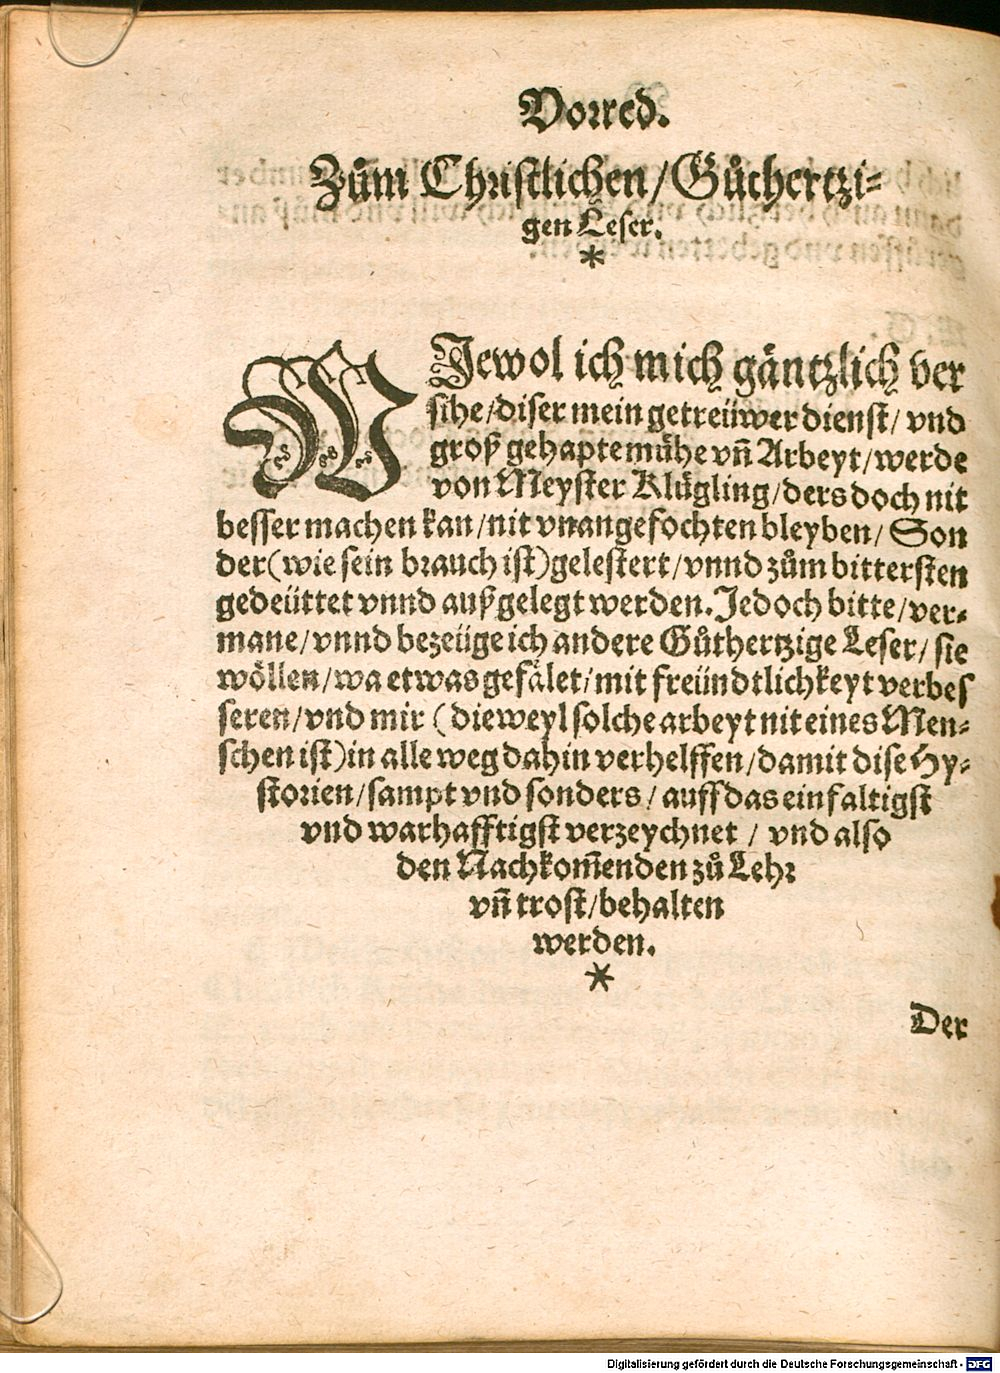 Vorred.
Zům Christlichen/Gůthertzi-
gen Leser.
*
WJewol ich mich gäntzlich ver
sihe/diser mein getreüwer dienst/ vnd
groß gehapte mühe vñ Arbeyt/werde
von Meyster Klůgling/ders doch nit
besser machen kan/nit vnangefochten bleyben/ Son
der(wie sein brauch ist)gelestert/vnnd zům bittersten
gedeüttet vnnd außgelegt werden. Jedoch bitte/ver-
mane/vnnd bezeüge ich andere Gůthertzige Leser/ sie
wöllen/wa etwas gefälet/mit freündtlichkeyt verbes
seren/vnd mir (dieweyl solche arbeyt nit eines Men-
schen ist)in alle weg dahin verhelffen/damit dise Hy-
storien/sampt vnd sonders/ auff das einfaltigst
vnd warhafftigst verzeychnet / vnd also
den Nachkom̃enden zů Lehr
vñ trost/behalten
werden.
*
Der
Digitalisierung gefördert durch die Deutsche Forschungsgemeinschaft - DFG